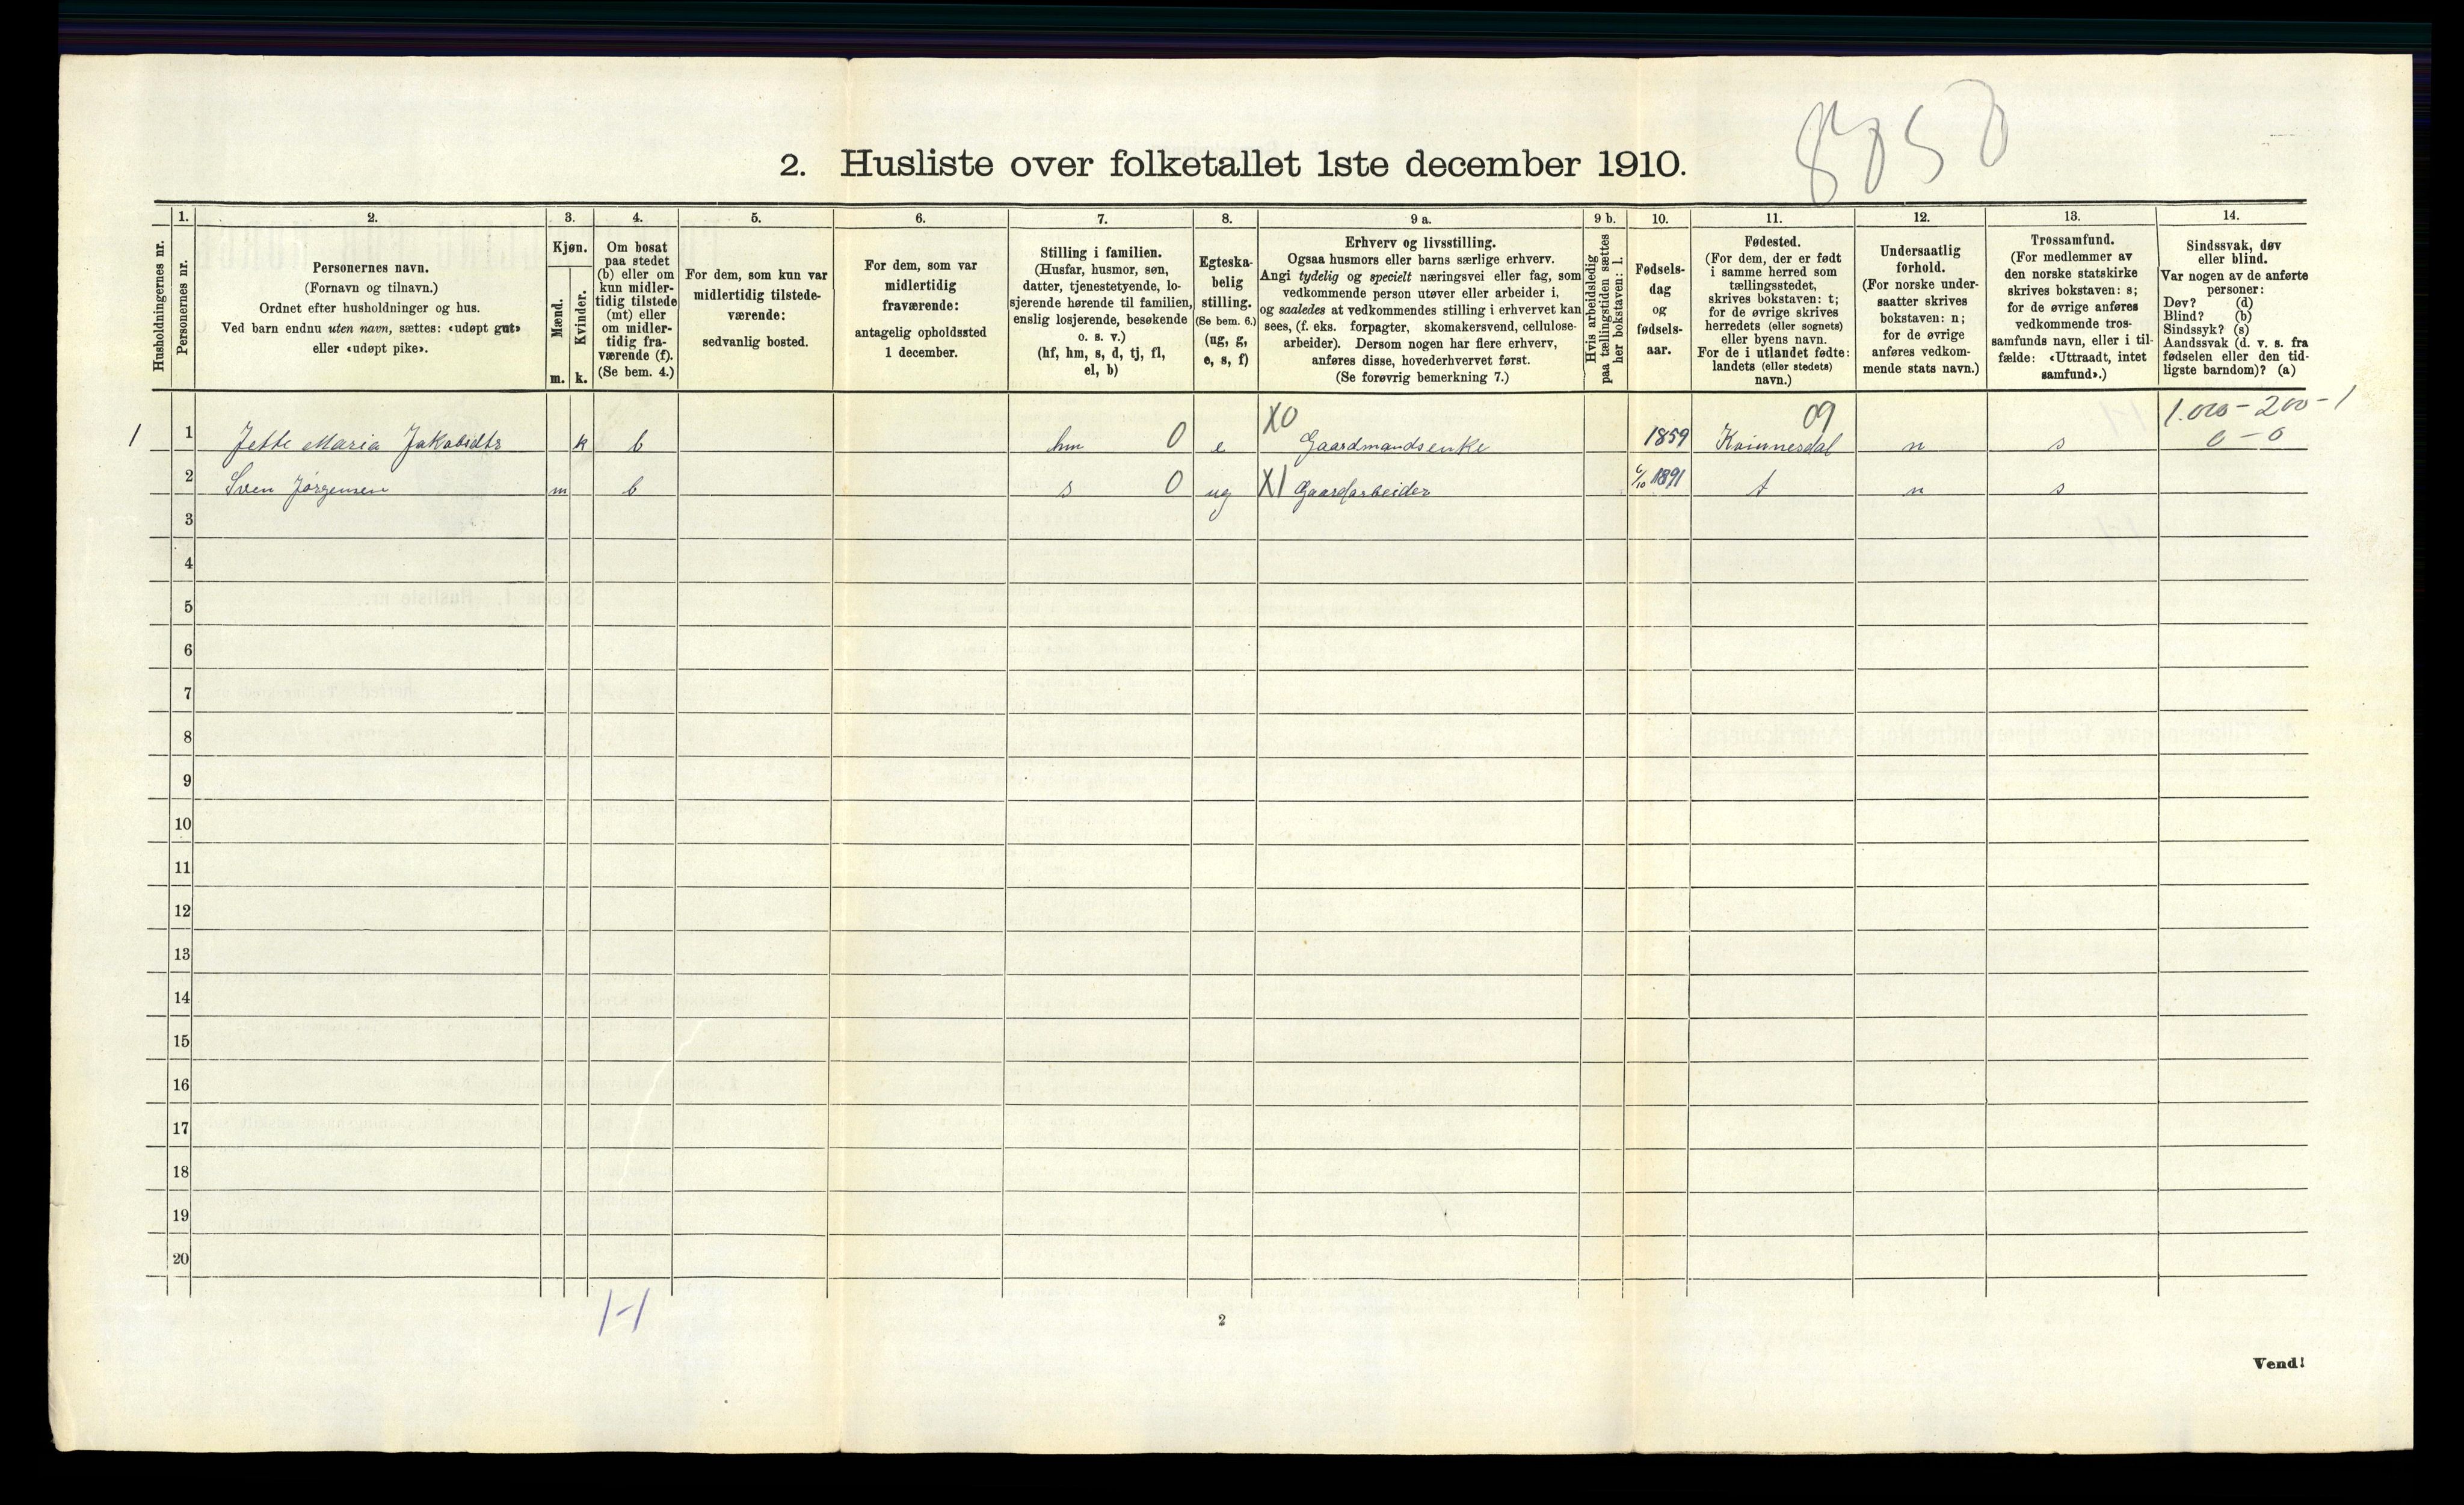 8050
2. Husliste over folketallet 1ste december 1910.
Husholdningernes nr.
1.
Personernes nr.
2.
Personernes navn.
(Fornavn og tilnavn.)
Ordnet efter husholdninger og hus.
Ved barn endnu uten navn, sættes: «udøpt gut»
eller «udøpt pike».
3.
Kjøn.
Mænd.
Kvinder.
m. k.
4.
Om bosat
paa stedet
(b) eller om
kun midler-
tidig tilstede
(mt) eller
om midler-
tidig fra-
værende (f).
(Se bem. 4.)
5.
For dem, som kun var
midlertidig tilstede-
værende:
sedvanlig bosted.
6.
For dem, som var
midlertidig
fraværende:
antagelig opholdssted
1 december.
7.
Stilling i familien.
(Husfar, husmor, søn,
datter, tjenestetyende, lo-
sjerende hørende til familien,
enslig losjerende, besøkende
o. s. v.)
(hf, hm, s, d, tj, fl,
el, b)
8.
Egteska-
belig
stilling.
(Se bem. 6.)
(ug, g,
e, s, f)
9 a.
Erhverv og livsstilling.
Ogsaa husmors eller barns særlige erhverv.
Angi tydelig og specielt næringsvei eller fag, som
vedkommende person utøver eller arbeider i,
og saaledes at vedkommendes stilling i erhvervet kan
sees, (f. eks. forpagter, skomakersvend, cellulose-
arbeider). Dersom nogen har flere erhverv,
anføres disse, hovederhvervet først.
(Se forøvrig bemerkning 7.)
9 b.
Hvis arbeidsledig
paa tællingstiden sættes
her bokstaven: l.
10.
Fødsels-
dag
og
fødsels-
aar.
11.
Fødested.
(For dem, der er født
i samme herred som
tællingsstedet,
skrives bokstaven: t;
for de øvrige skrives
herredets (eller sognets)
eller byens navn.
For de i utlandet fødte:
landets (eller stedets)
navn.)
12.
Undersaatlig
forhold.
(For norske under-
saatter skrives
bokstaven: n;
for de øvrige
anføres vedkom-
mende stats navn.)
13.
Trossamfund.
(For medlemmer av
den norske statskirke
skrives bokstaven: s;
for de øvrige anføres
vedkommende tros-
samfunds navn, eller i til-
fælde: «Uttraadt, intet
samfund».)
14.
Sindssvak, døv
eller blind.
Var nogen av de anførte
personer:
Døv? (d)
Blind? (b)
Sindssyk? (s)
Aandssvak (d. v. s. fra
fødselen eller den tid-
ligste barndom)? (a)
X0 09 1.000 - 200 - 1
1 1 Jette Maria Jakobsdtr k b hm 0 e Gaardmandsenke 1859 Kvinnesdal n s 0 - 0
2 Sven Jørgensen m b s 0 ug X1 Gaardarbeider 6/10 1891 t n s
3
4
5
6
7
8
9
10
11
12
13
14
15
16
17
18
19
20
1-1
2
Vend!